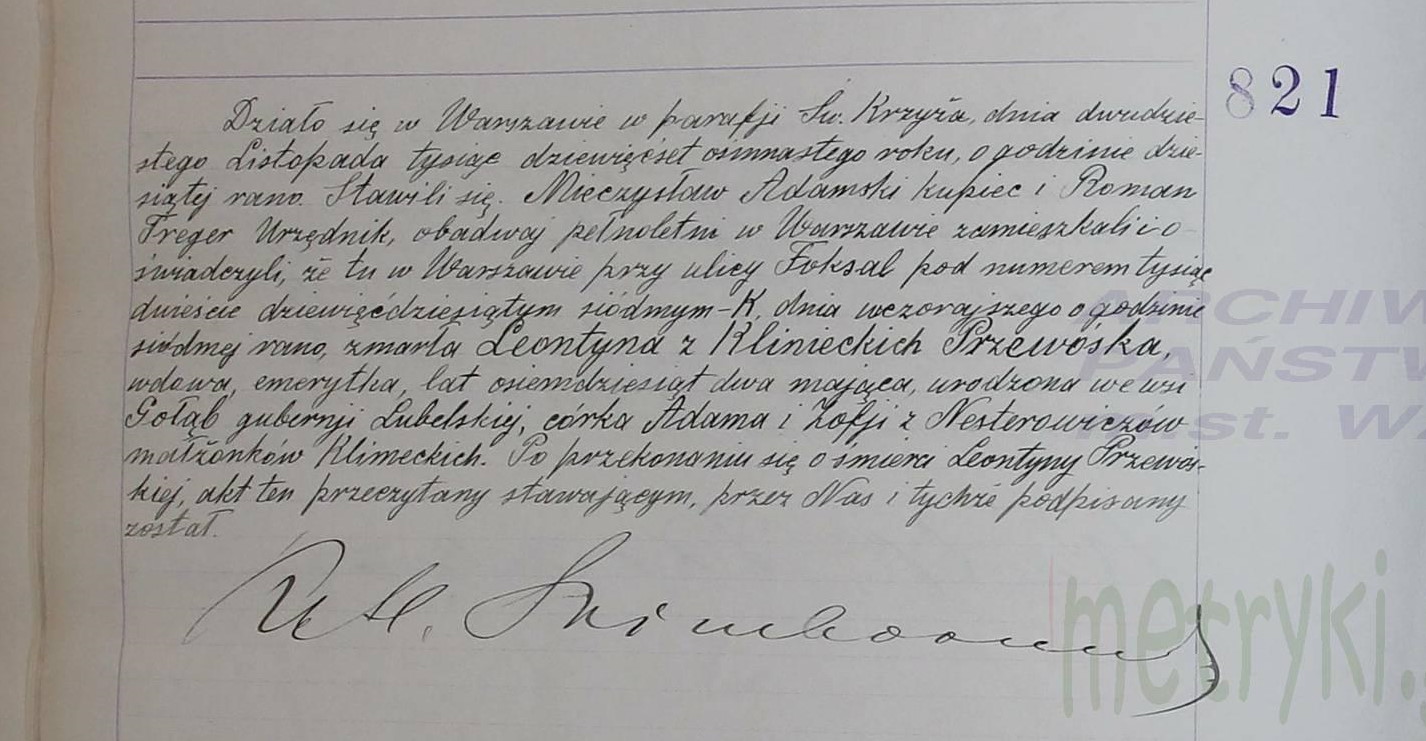 821
Działo się w Warszawie w parafji Św. Krzyża, dnia dwudzie-
stego Listopada tysiąc dziewięćset osimnastego roku, o godzinie dzie-
siątej rano. Stawili się. Mieczysław Adamski kupiec i Roman
Treger Urzędnik, obadwaj pełnoletni w Warszawie zamieszkali i o-
świadczyli, że tu w Warszawie przy ulicy Foksal pod numerem tysiąc
dwieście dziewięćdziesiątym siódmym-K, dnia wczorajszego o godzinie
siódmej rano, zmarła Leontyna z Klimeckich Przewóska,
wdowa, emerytka, lat osiemdziesiąt dwa mająca, urodzona we wsi
Gołąb gubernji Lubelskiej, córka Adama i Zofji z Nesterowiczów
małżonków Klimeckich. Po przekonaniu się o śmierci Leontyny Przewós-
kiej, akt ten przeczytany stawającym, przez Nas i tychże podpisany
został.
ARCHIW
PAŃSTW
m.st. W
metryki.